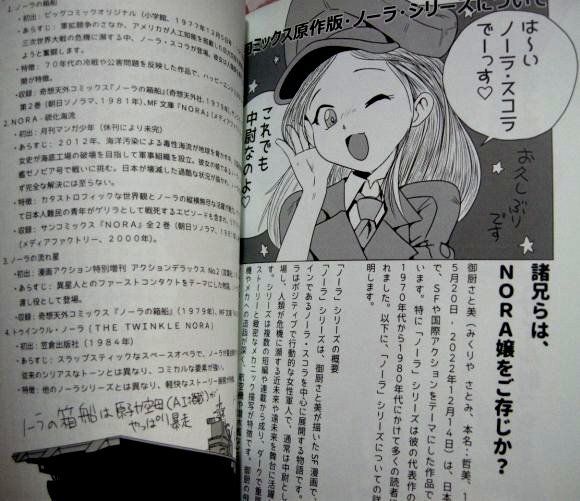 1. ノーラの箱船
・初出：ビッグコミックオリジナル（小学館、1977年12月5日
・あらすじ：軍拡競争のさなか、アメリカが人工知能を搭載した
三次世界大戦の危機に瀕する中、ノーラ・スコラが登場。
ようと奮闘します。
・特徴：70年代の冷戦や公害問題を反映した作品で、ハッピーエンド
開が特徴。
・収録：奇想天外コミックス『ノーラの箱船』（奇想天外社、1979年）、サン
第2巻（朝日ソノラマ、1981年）、MF文庫『NORA』（メディアファ
2. NORA・硫化海流
・初出：月刊マンガ少年（休刊により未完）
・あらすじ：2012年、海洋汚染による毒性海流が地球を脅かす
女史が海底工場の破壊を目指して軍事組織を設立。彼女の
艦ゼノビア号で戦いに挑む。日本が壊滅した過酷な状況が描かれ、
ず完全な解決には至らない。
・特徴：カタストロフィックな世界観とノーラの縦横無尽な活躍が
て日本人難民の青年がゲリラとして戦死するエピソードも含まれ
・収録：サンコミックス『NORA』全2巻（朝日ソノラマ、1981
（メディアファクトリー、2000年）。
3. ノーラの流れ星
・初出：漫画アクション特別増刊 アクションデラックス No.2（双葉社
・あらすじ：異星人とのファーストコンタクトをテーマにした物語
渡し役として登場。
・収録：奇想天外コミックス『ノーラの箱船』（1979年）、MF文庫
4. トゥインクル・ノーラ（THE TWINKLE NORA）
・初出：笠倉出版社（1984年）
・あらすじ：スラップスティックなスペースオペラで、ノーラが
従来のシリアスなトーンとは異なり、コミカルな要素が強い
・特徴：他のノーラシリーズとは異なり、軽快なストーリー展開が
ノーラの箱船は原子力空母（AI
やっぱり暴走
コミックス原作版・ノーラ・シリーズについて
は〜い
ノーラ・スコラ
でーっす♡
これでも
中尉なのよ♡
お久しぶり
です
諸兄らは、
NORA嬢をご存じか？
御厨さと美（みくりや さとみ、本名：哲美、1
5月20日 - 2022年12月14日）は、日本
で、SFや国際アクションをテーマにした作品
います。特に「ノーラ」シリーズは彼の代表作の
1970年代から1980年代にかけて多くの読者
れました。以下に、「ノーラ」シリーズについての詳
明します。
「ノーラ」シリーズの概要
「ノーラ」シリーズは、御厨さと美が描いたSF漫画で、
インであるノーラ・スコラを中心に展開する物語です。
ラはポジティブで行動的な女性軍人で、通常は中尉とし
場し、人類が危機に瀕する近未来や遠未来を舞台に活躍
す。シリーズは複数の短編や連載から成り、ダークで重厚
ストーリーと緻密なメカニック描写が特徴です。御厨の
機やメカへの造詣が深く、航空機や